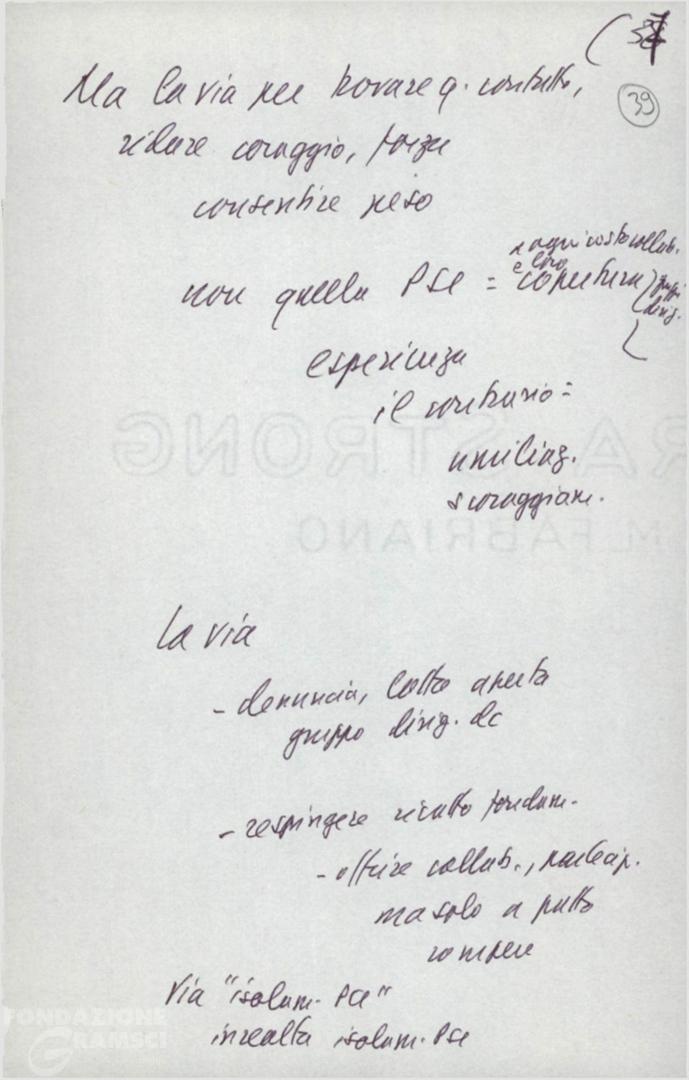 (38
39
Ma la via per trovare q. contatto,
ridare coraggio, forza
consentire peso
x ogni costo collab.
e loro
non quella PSI = copertura gruppi
dirig.
esperienza
il contrario =
umiliaz.
scoraggiam.
RA STRONG
M. FABRIANO
La via
- denuncia, lotta aperta
gruppo dirig. dc
- respingere ricatto fondam.
- offrire collab., partecip.
ma solo a patto
rompere
Via "isolam. PCI"
in realtà isolam. PSI
FONDAZIONE
GRAMSCI